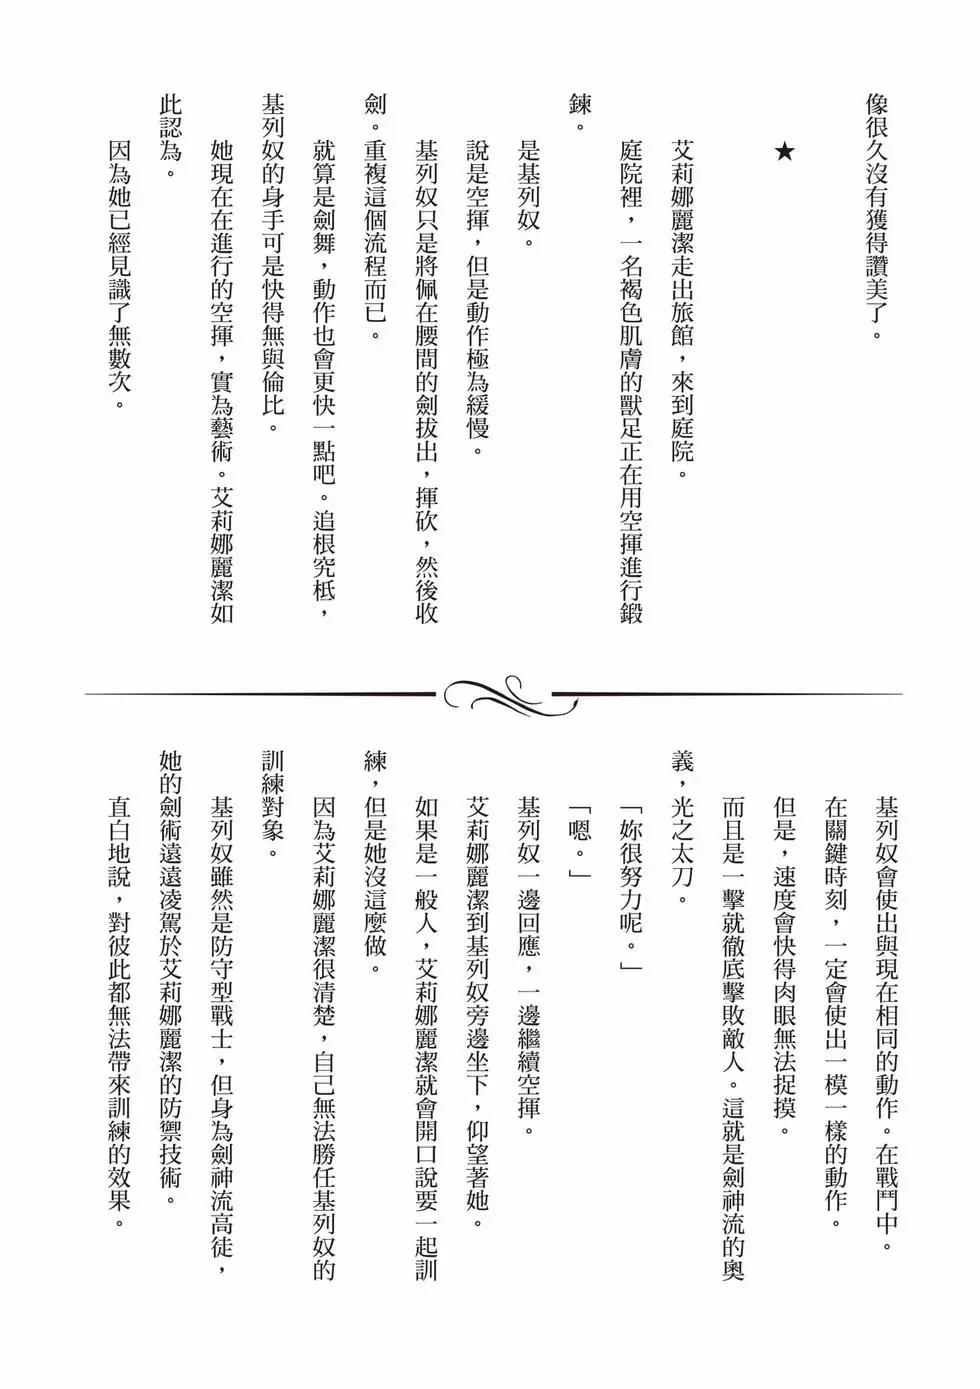 像很久沒有獲得讚美了。
★
艾莉娜麗潔走出旅館，來到庭院。
庭院裡，一名褐色肌膚的獸足正在用空揮進行鍛
鍊。
是基列奴。
說是空揮，但是動作極為緩慢。
基列奴只是將佩在腰間的劍拔出，揮砍，然後收
劍。重複這個流程而已。
就算是劍舞，動作也會更快一點吧。追根究柢，
基列奴的身手可是快得無與倫比。
她現在在進行的空揮，實為藝術。艾莉娜麗潔如
此認為。
因為她已經見識了無數次。
基列奴會使出與現在相同的動作。在戰鬥中。
在關鍵時刻，一定會使出一模一樣的動作。
但是，速度會快得肉眼無法捉摸。
而且是一擊就徹底擊敗敵人。這就是劍神流的奧
義，光之太刀。
「妳很努力呢。」
「嗯。」
基列奴一邊回應，一邊繼續空揮。
艾莉娜麗潔到基列奴旁邊坐下，仰望著她。
如果是一般人，艾莉娜麗潔就會開口說要一起訓
練，但是她沒這麼做。
因為艾莉娜麗潔很清楚，自己無法勝任基列奴的
訓練對象。
基列奴雖然是防守型戰士，但身為劍神流高徒，
她的劍術遠遠凌駕於艾莉娜麗潔的防禦技術。
直白地說，對彼此都無法帶來訓練的效果。